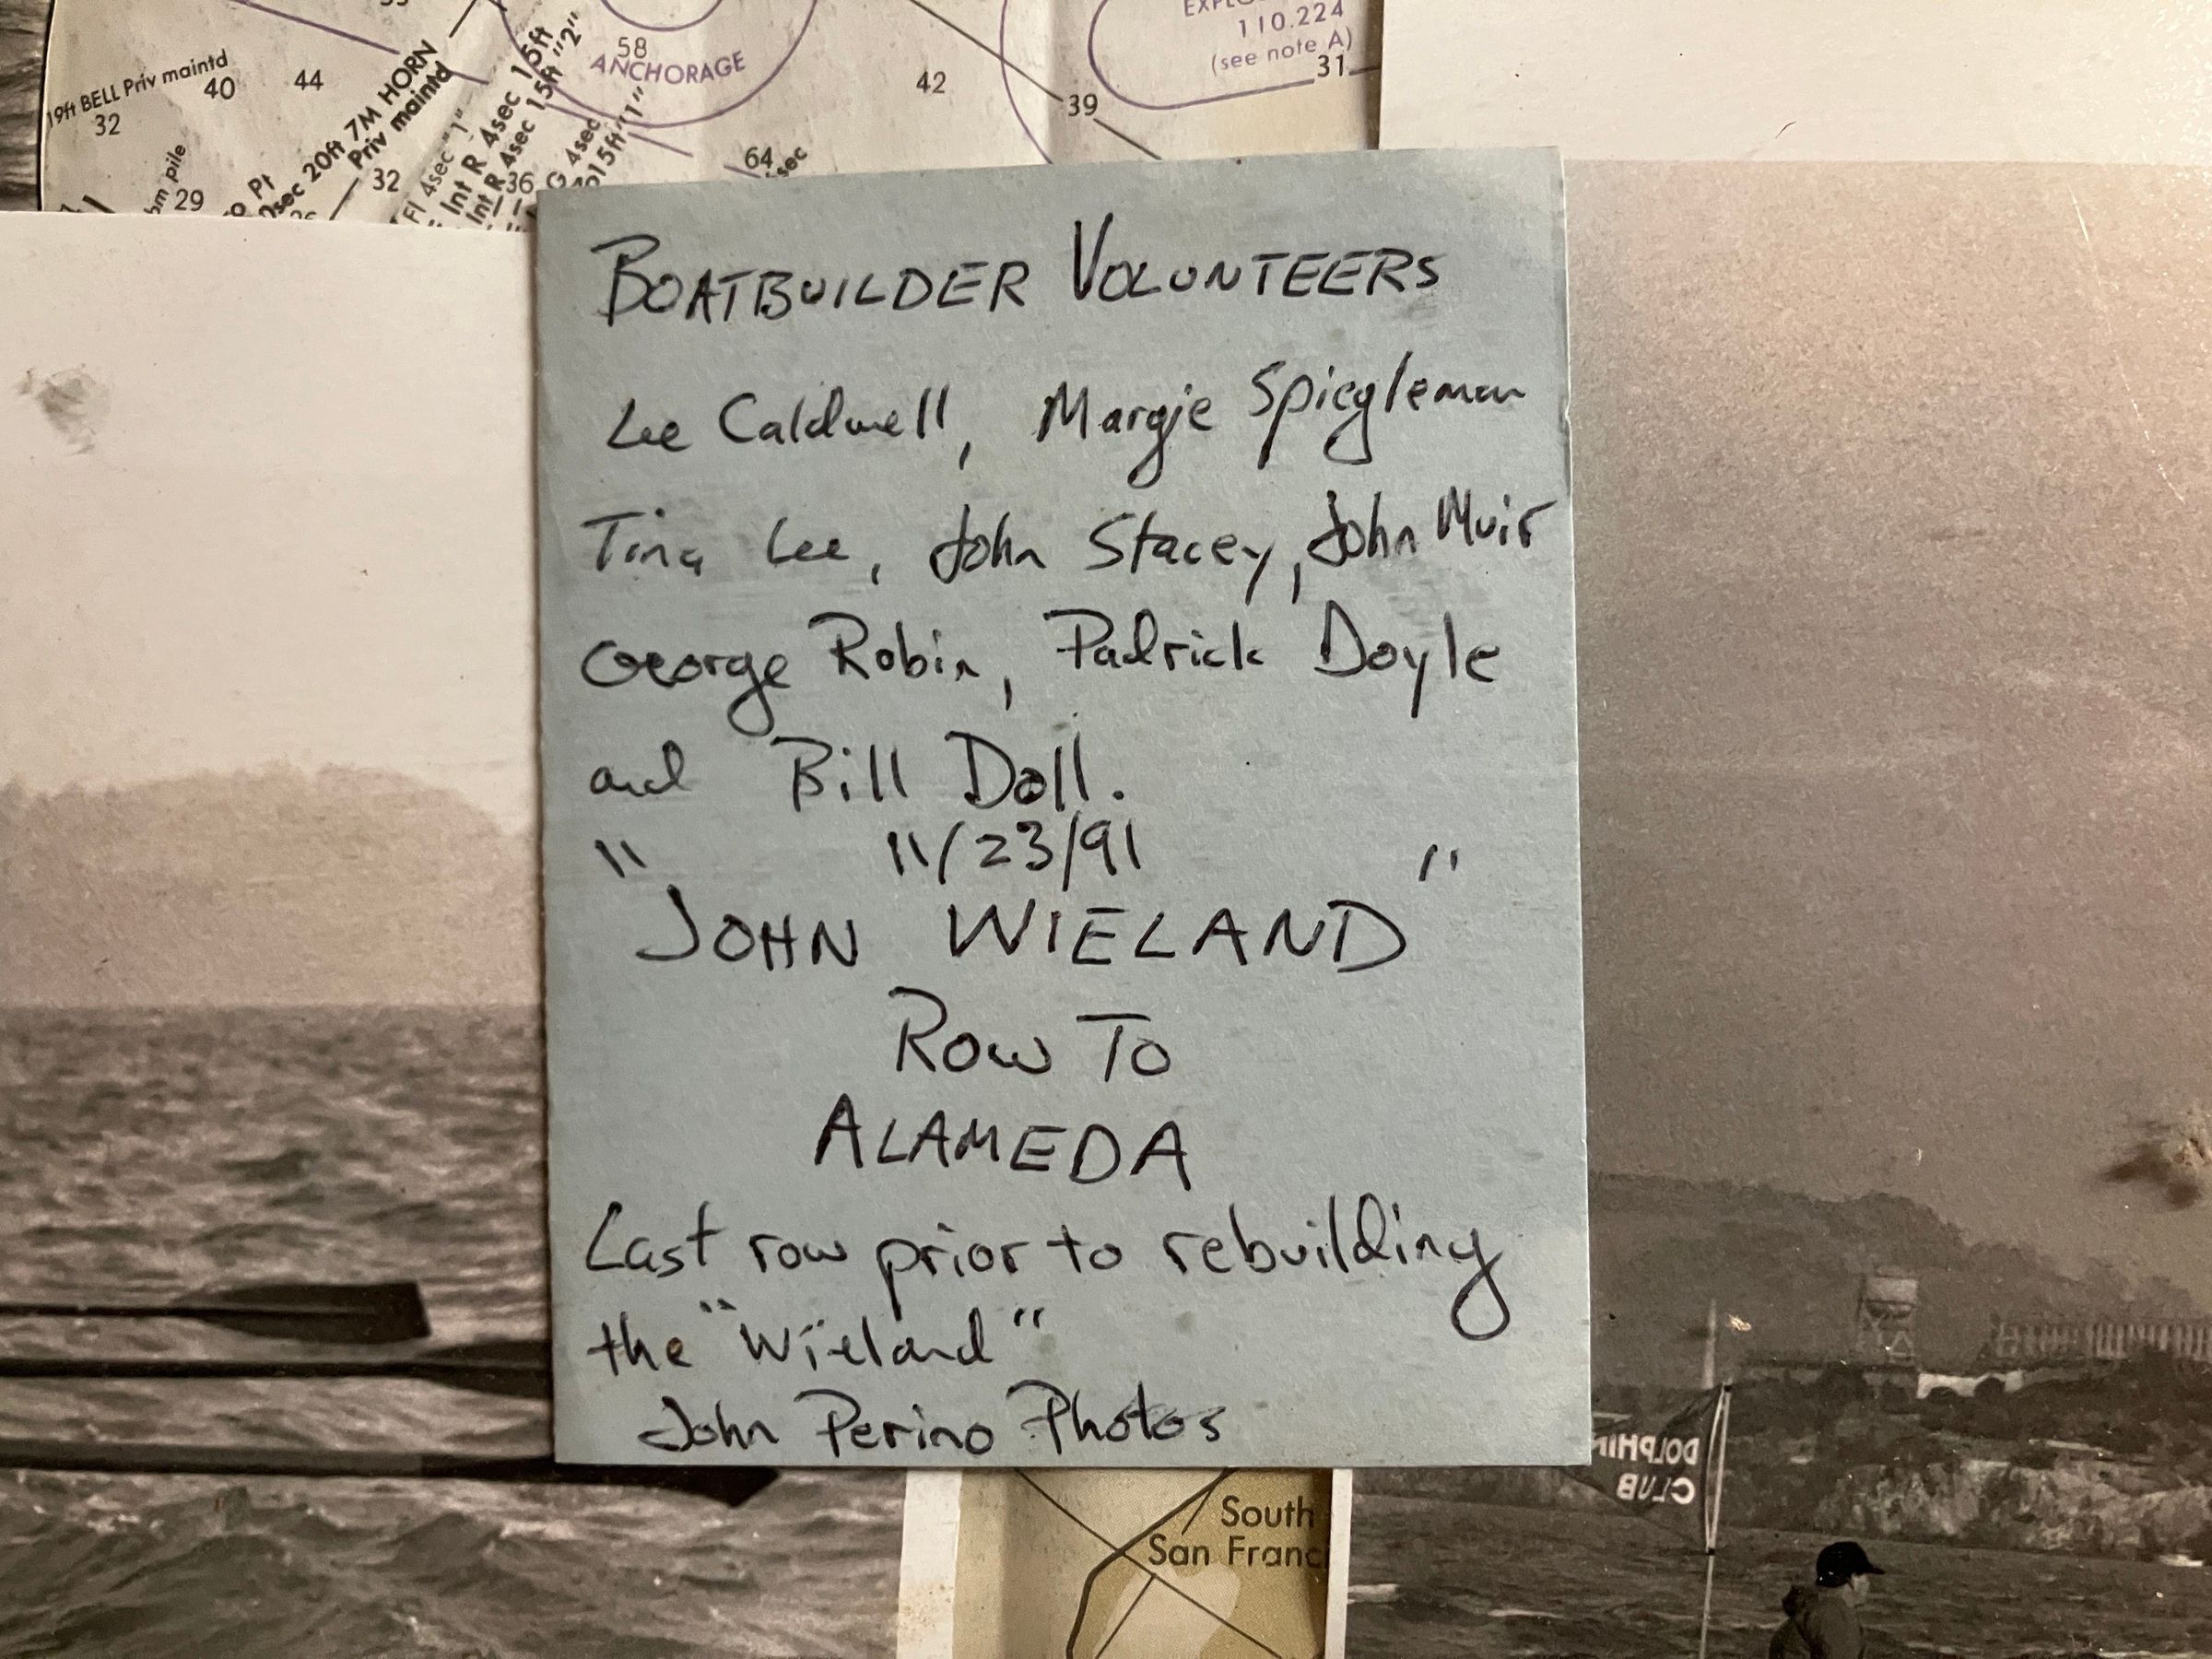 19ft BELL Priv maintd
40
44
32
29
20ft 7M HORN
Priv maintd
32
Fl 4sec "1"
Int R 4sec 15ft
Int R 4sec 15ft "2"
36
G 4sec
15ft "1"
58
ANCHORAGE
64
sec
42
39
110.224
(see note A)
31
BOATBUILDER VOLUNTEERS
Lee Caldwell, Margie Spiegleman
Tina Lee, John Stacey, John Muir
George Robin, Padrick Doyle
and Bill Doll.
" 11/23/91 "
JOHN WIELAND
ROW TO
ALAMEDA
Last row prior to rebuilding
the "Wieland"
John Perino Photos
South
San Franc
DOLPHIN
CLUB